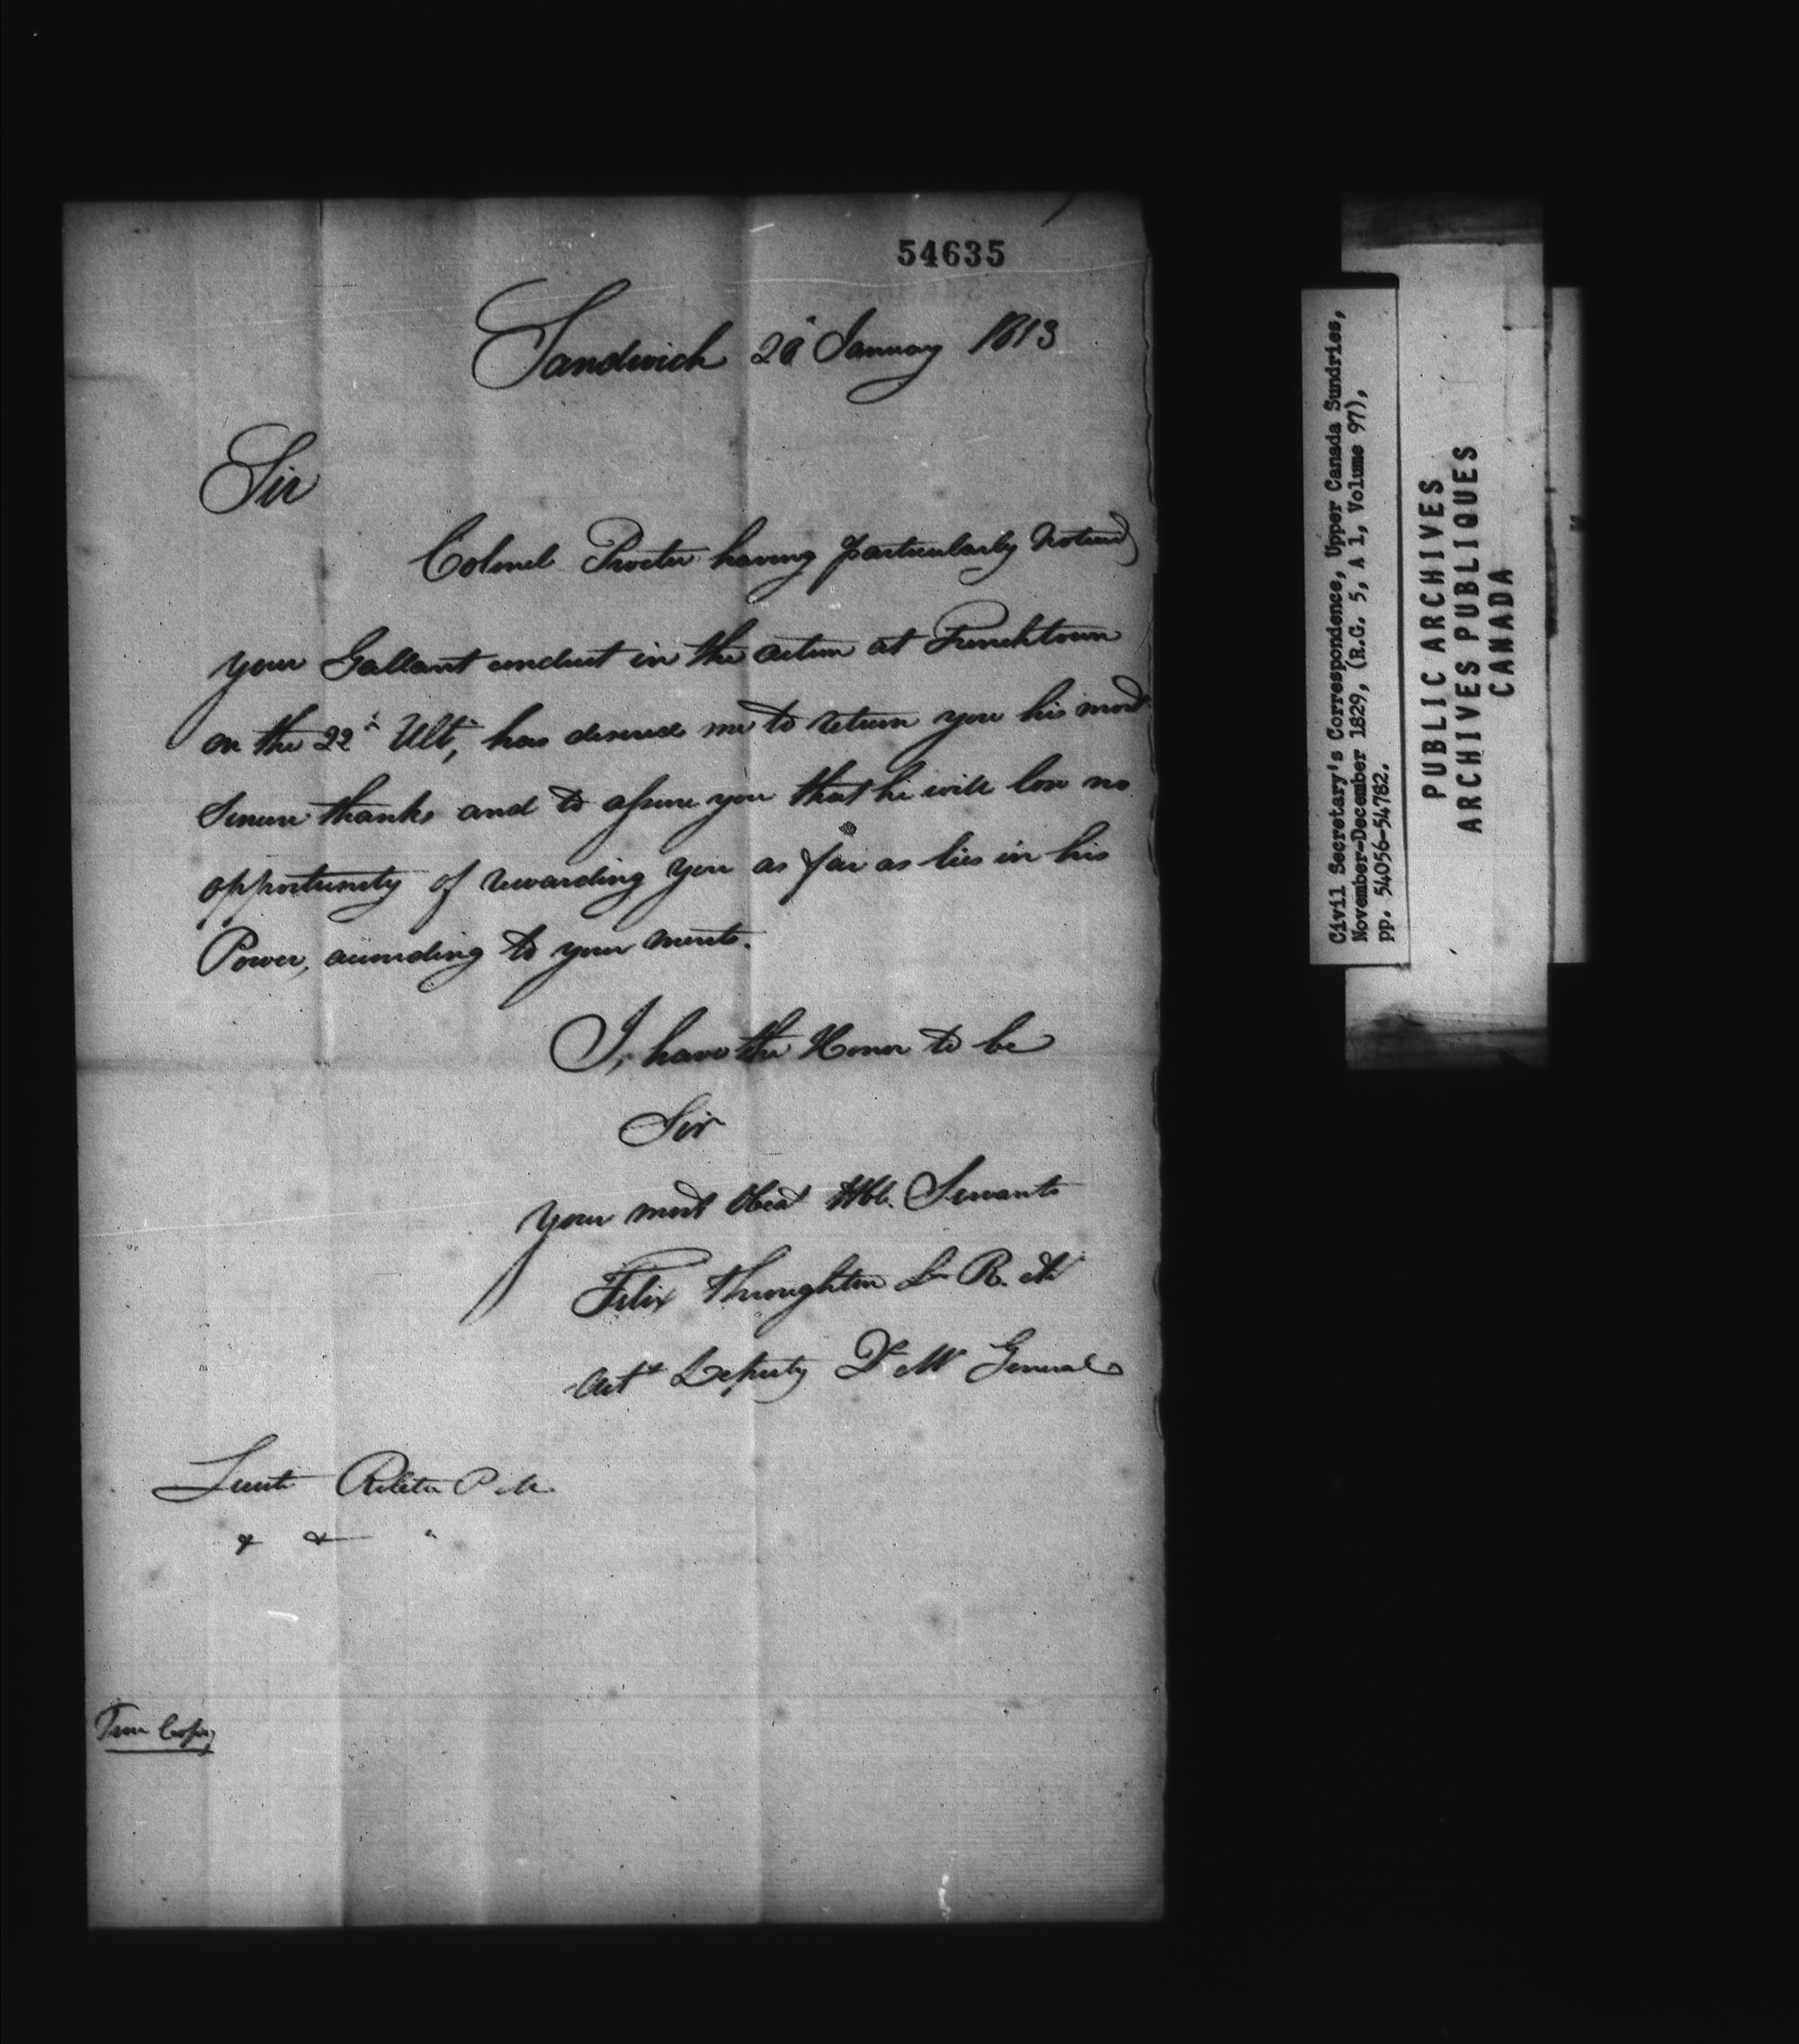 54635
Sandwich 28 January 1813
Sir
Colonel Procter having particularly Noticed
your Gallant conduct in the action at Frenchtown
on the 22d Ulto, has desired me to return you his most
Sincere thanks and to assure you that he will lose no
opportunity of rewarding you as far as lies in his
Power, according to your merits.
I, have the Honor to be
Sir
Your most Obedt Hble. Servant
Felix Throughton Lt R. A
Act Deputy Q M General
Lieut P M.
& &
True Copy
Civil Secretary's Correspondence, Upper Canada Sundries,
November-December 1829, (R.G. 5, A 1, Volume 97),
pp. 54056-54782.
PUBLIC ARCHIVES
ARCHIVES PUBLIQUES
CANADA